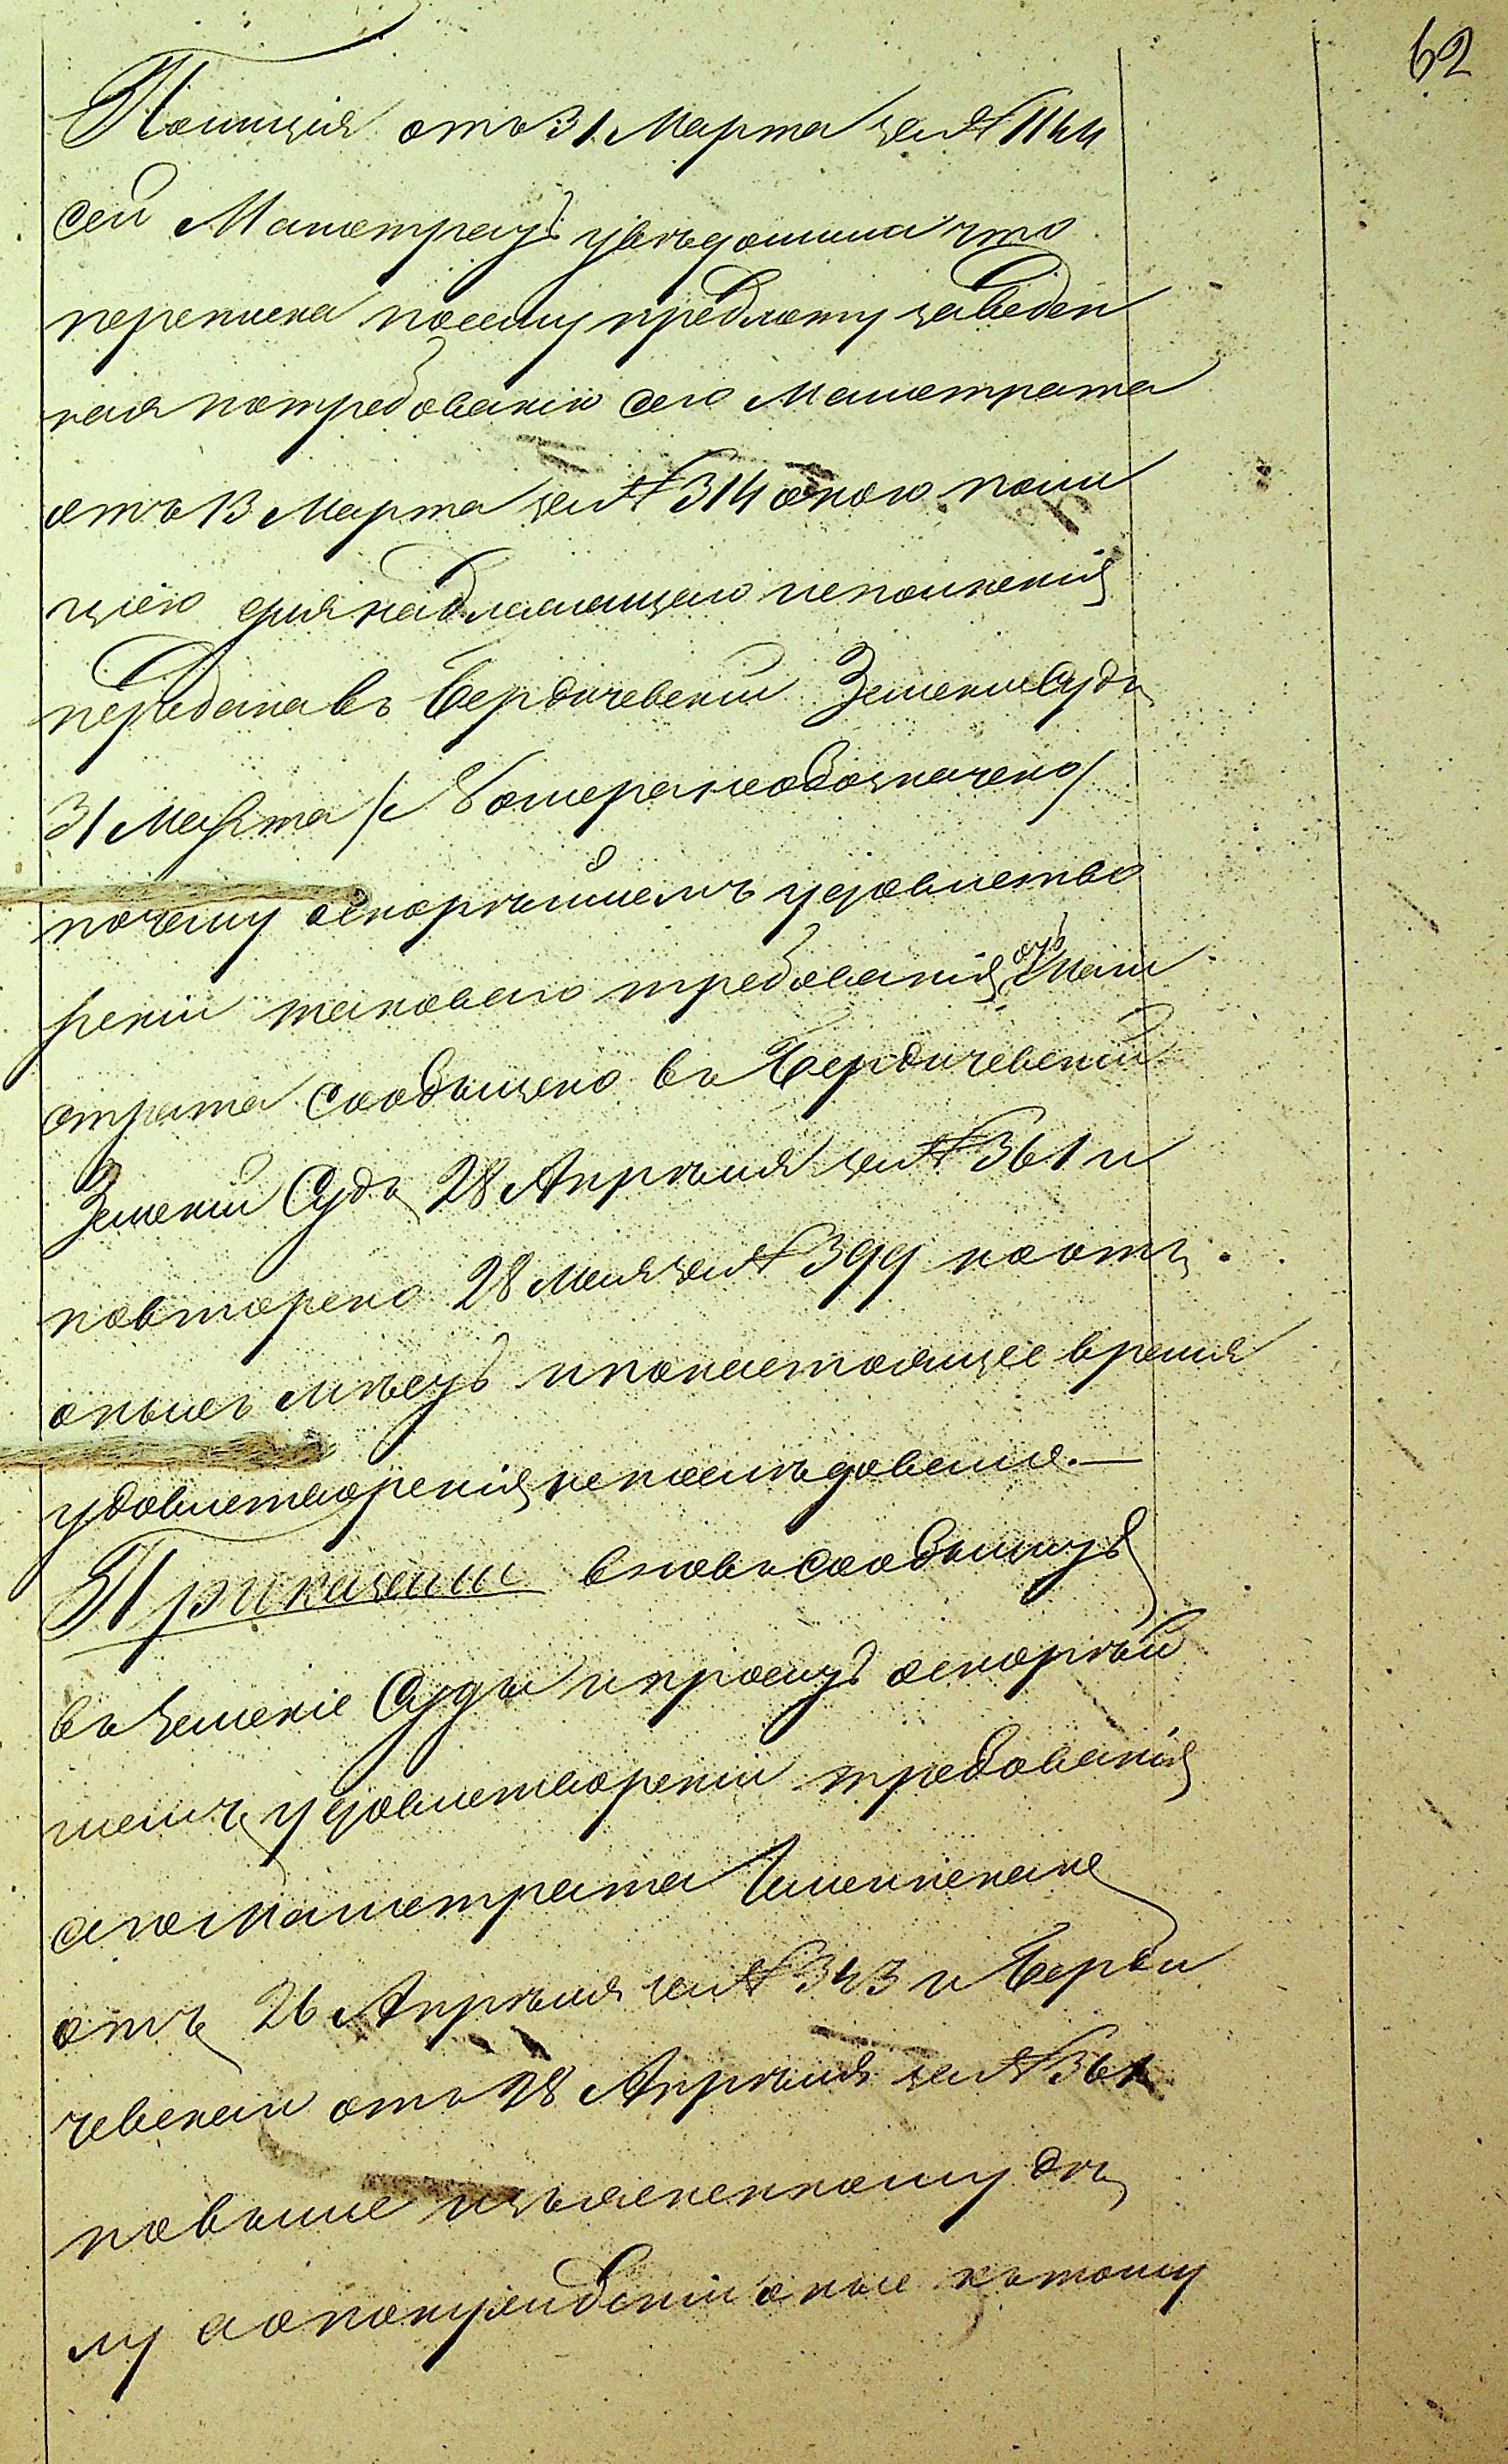 62
Полиція отъ 31 Марта за № 1144
сей Магистратъ увѣдомила что
переписка посему предмету заведен
ная потребованію сего Магистрата
отъ 13 Марта за № 314 оною поли
ціею для надлежащаго исполненія
передана въ Бердичевскій Земскій Судъ
31 Марта / Номера необозначено /
почему о скорѣйшемъ удовлетво
реніи таковаго требованія Маги
страта сообщено въ Бердичевскій
Земскій Судъ 28 Апрѣля за № 361 и
повторено 28 Мая за № 399 но отъ
оныхъ мѣстъ и понастоящее время
удовлетворенія непослѣдовало. —
Приказали вновь сообщить
въ Земскіе Суды и просить о скорѣй
шемъ удовлетвореніи требованія
сего Магистрата
отъ 26 Апрѣля за № 343 и Берди
чевскій отъ 28 Апрѣля за № 361
повыше изъясненному дѣ
лу а опонужденіи оные къ тому